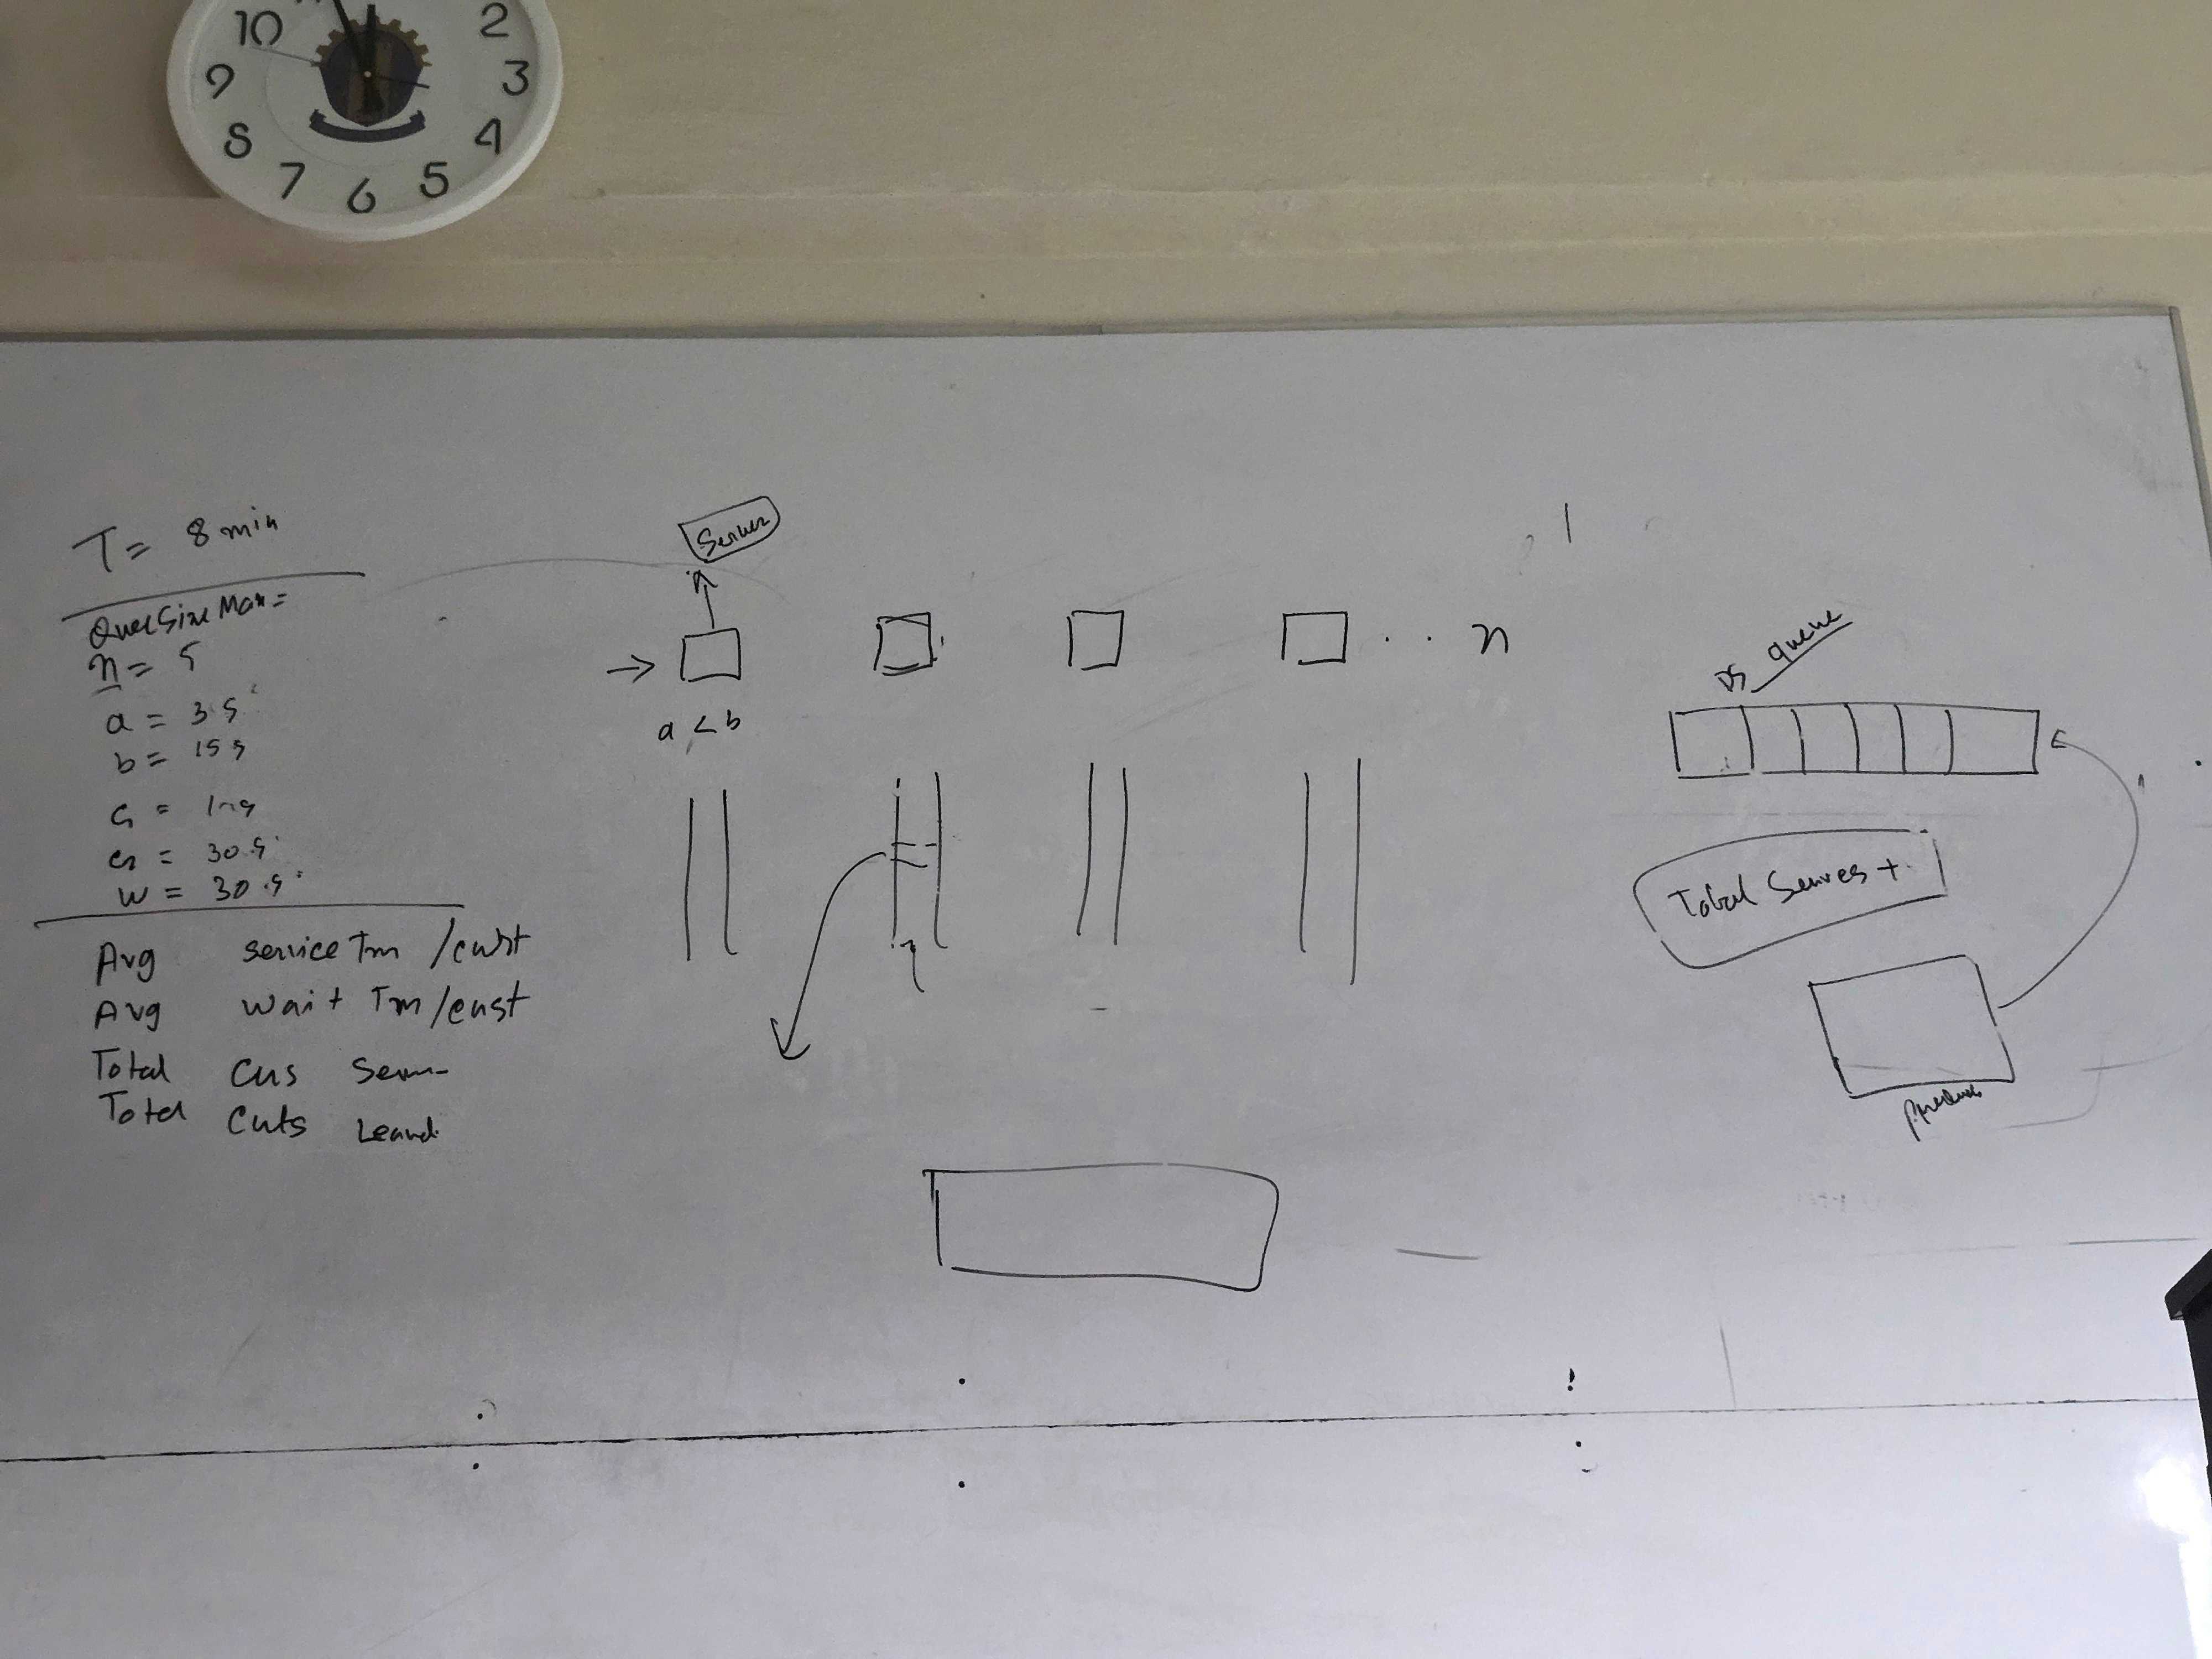 10
2
9
3
8
4
7
6
5
T = 8 min
QueeSizeMax =
n = 5
a = 3 s
b = 15 s
= 30 s
w = 30 s
Avg service Tm /cust
Avg wait Tm /cust
Total Cus
Total Cuts
Server
n
a < b
DS queue
Total Serves +